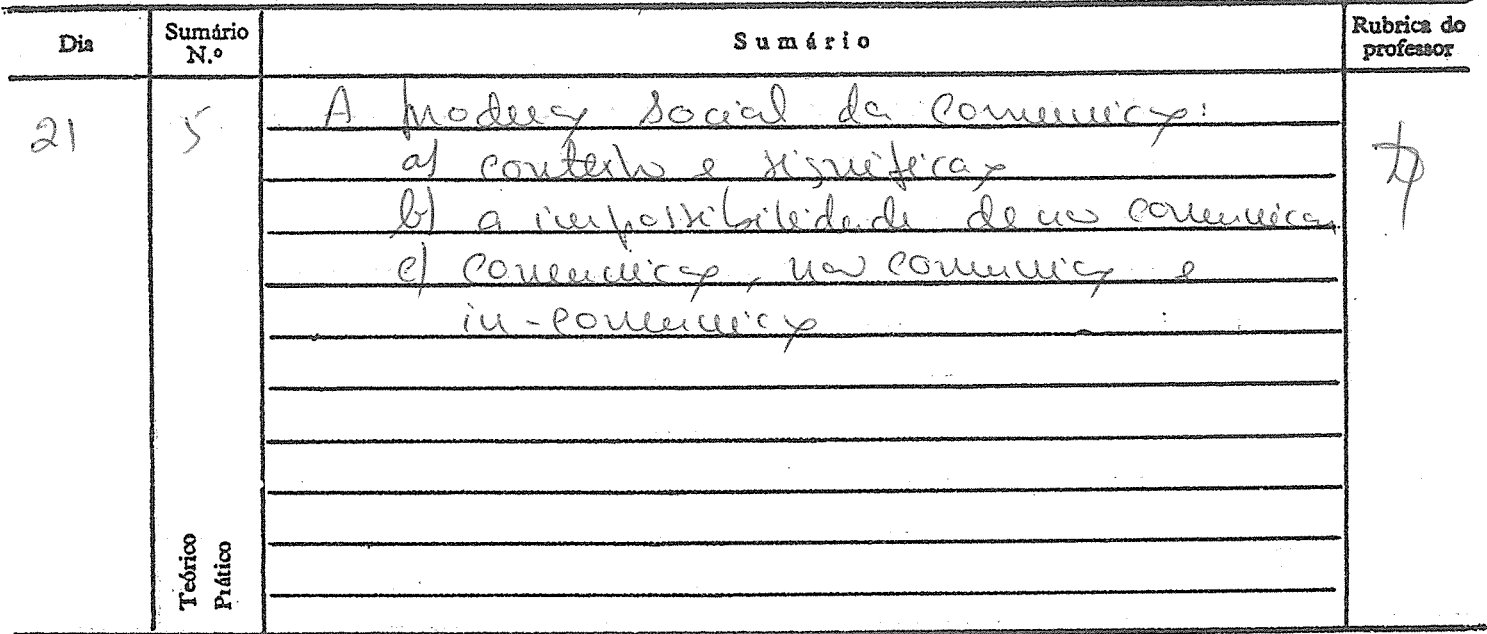 Dia
Sumário N.º
Sumário
Rubrica do professor
21
5
A produç social da comunicç:
a) contexto e significaç
b) a impossibilidade de não comunicar
c) comunicç, não comunicç e
in-comunicç
Teórico
Prático